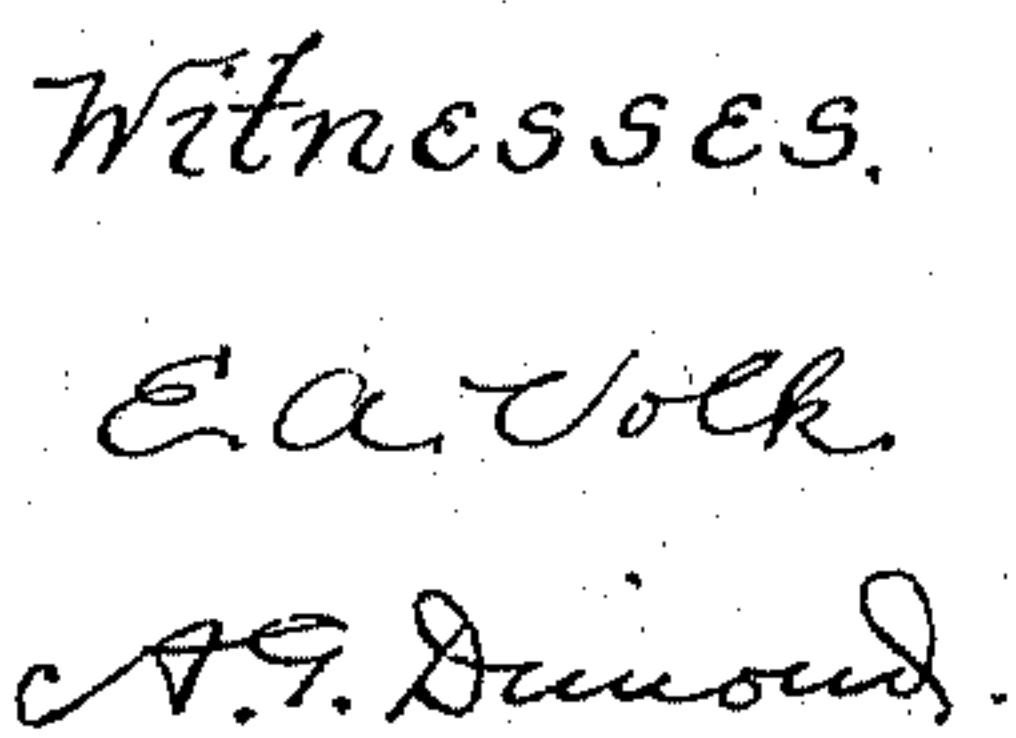 Witnesses.
E. A. Volk.
A. G. Dimond.